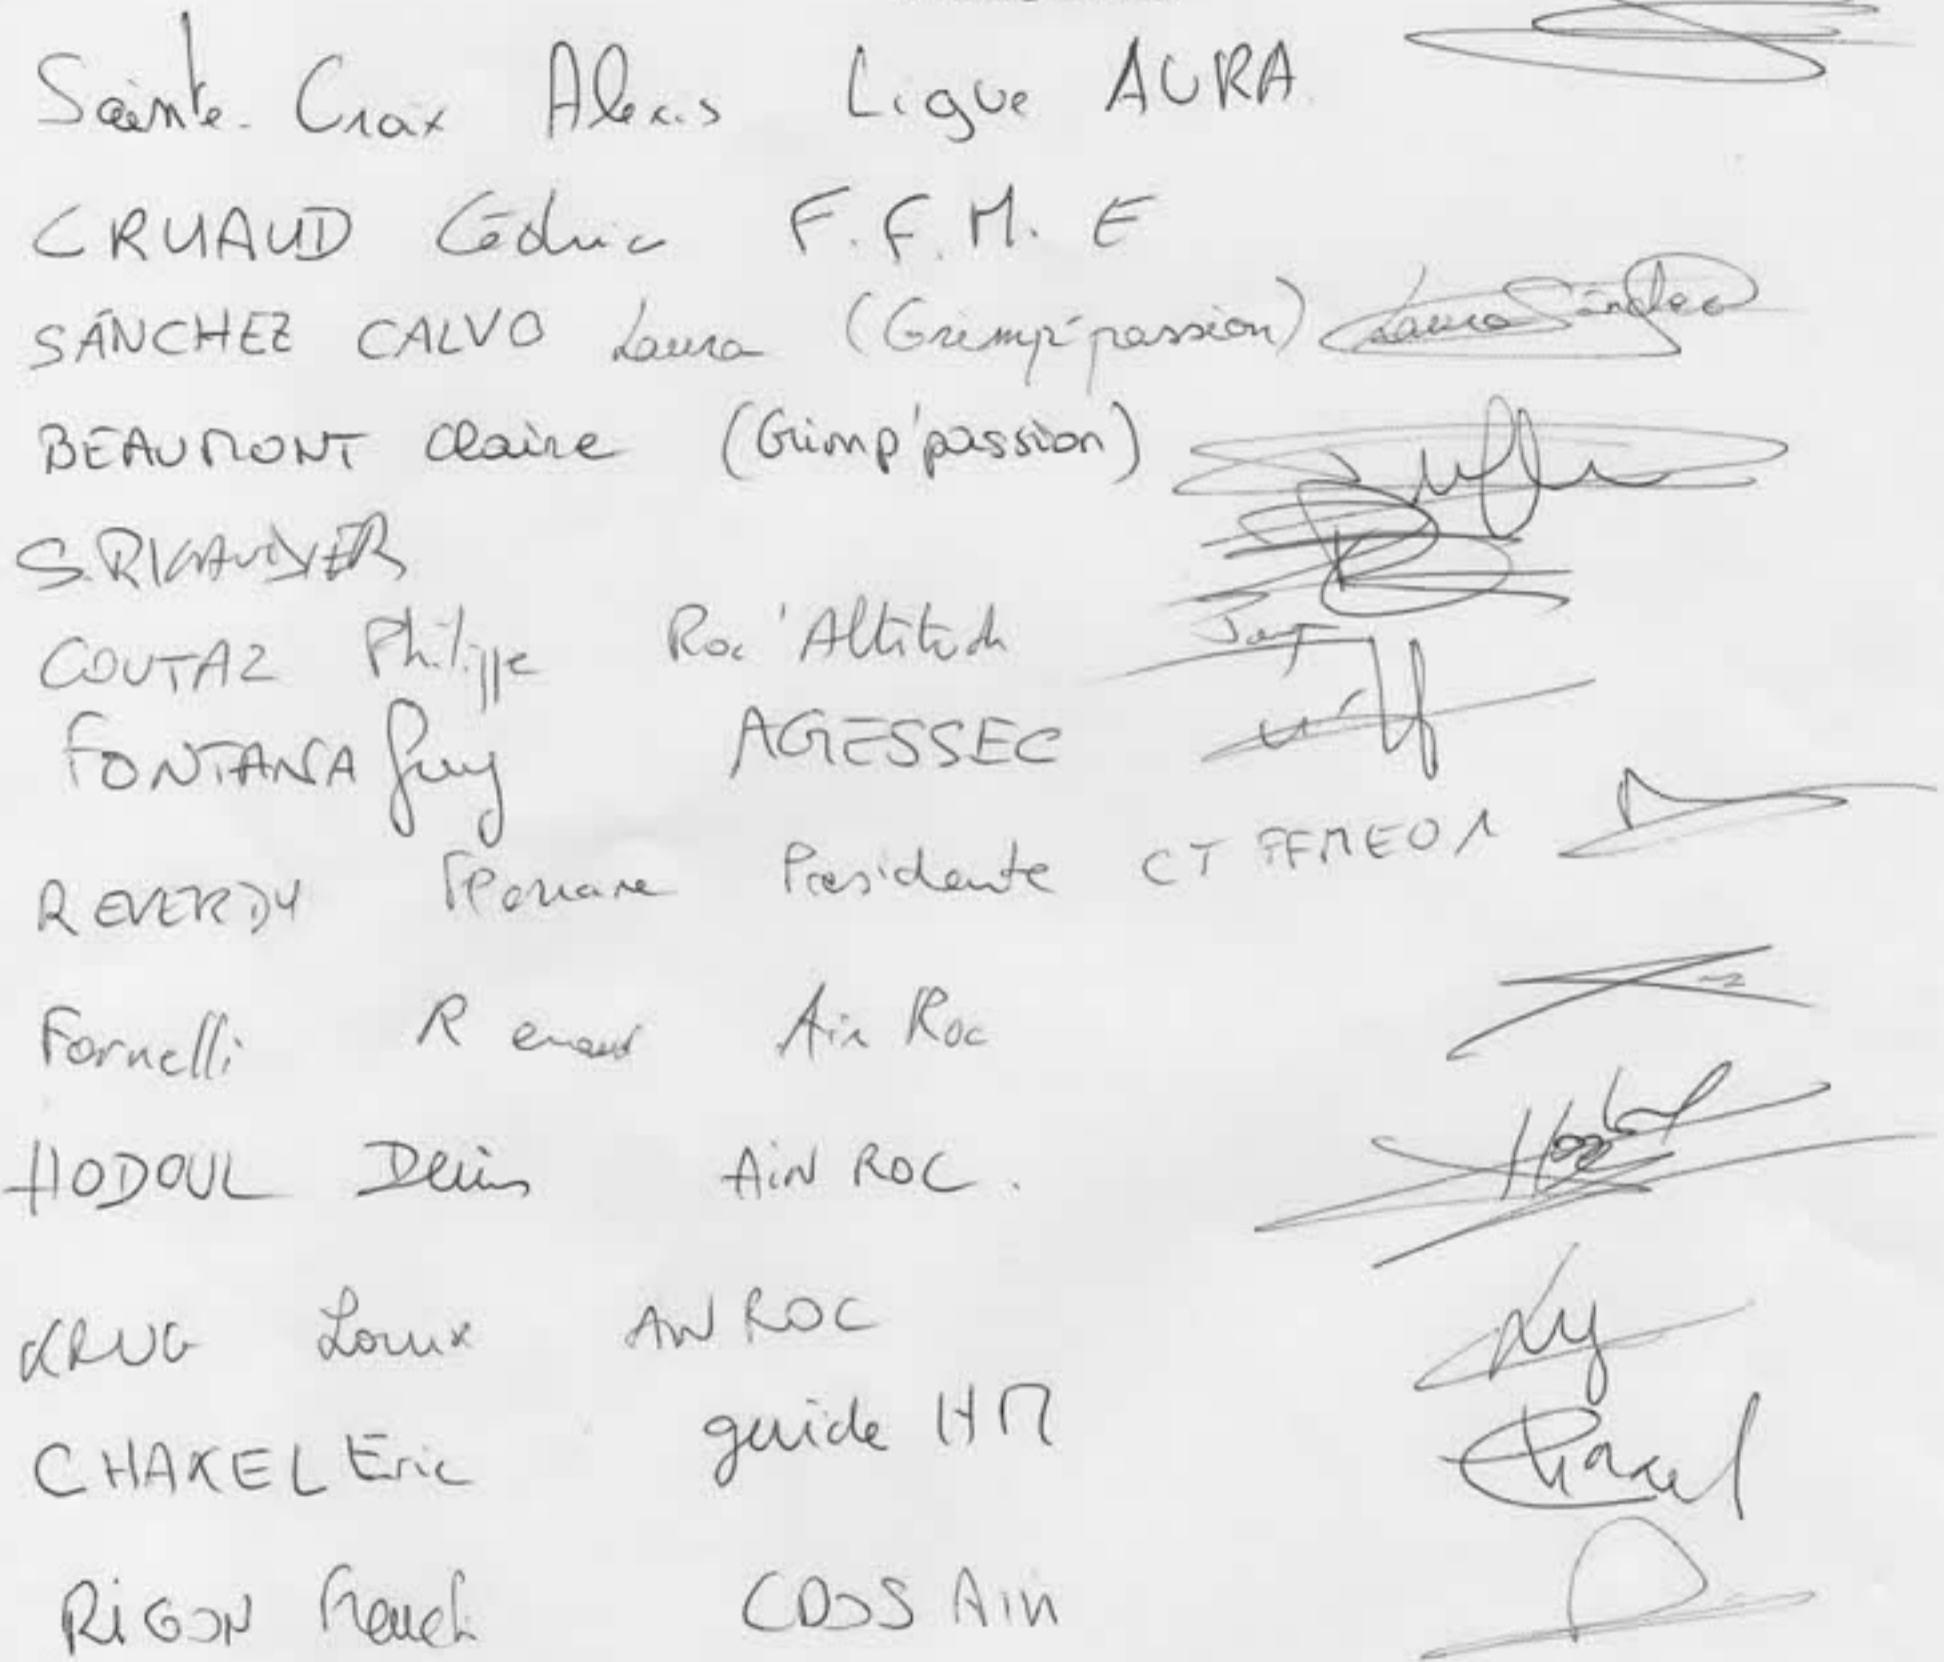 Sainte-Croix Alexis Ligue AURA
CRUAUD Cédric F.F.M.E
SÁNCHEZ CALVO Laura (Grimp'passion) Laura Sánchez
BEAUMONT Claire (Grimp'passion)
COUTAZ Philippe Roc'Altitude
FONTANA Guy AGESSEC
REVERDY Présidente CT FFME01
Fornelli Renaud Ain Roc
HODOUL Denis AiN ROC.
KRUG AIN ROC
CHAKEL Eric guide HM Chakel
RiGON Franck CDOS Ain